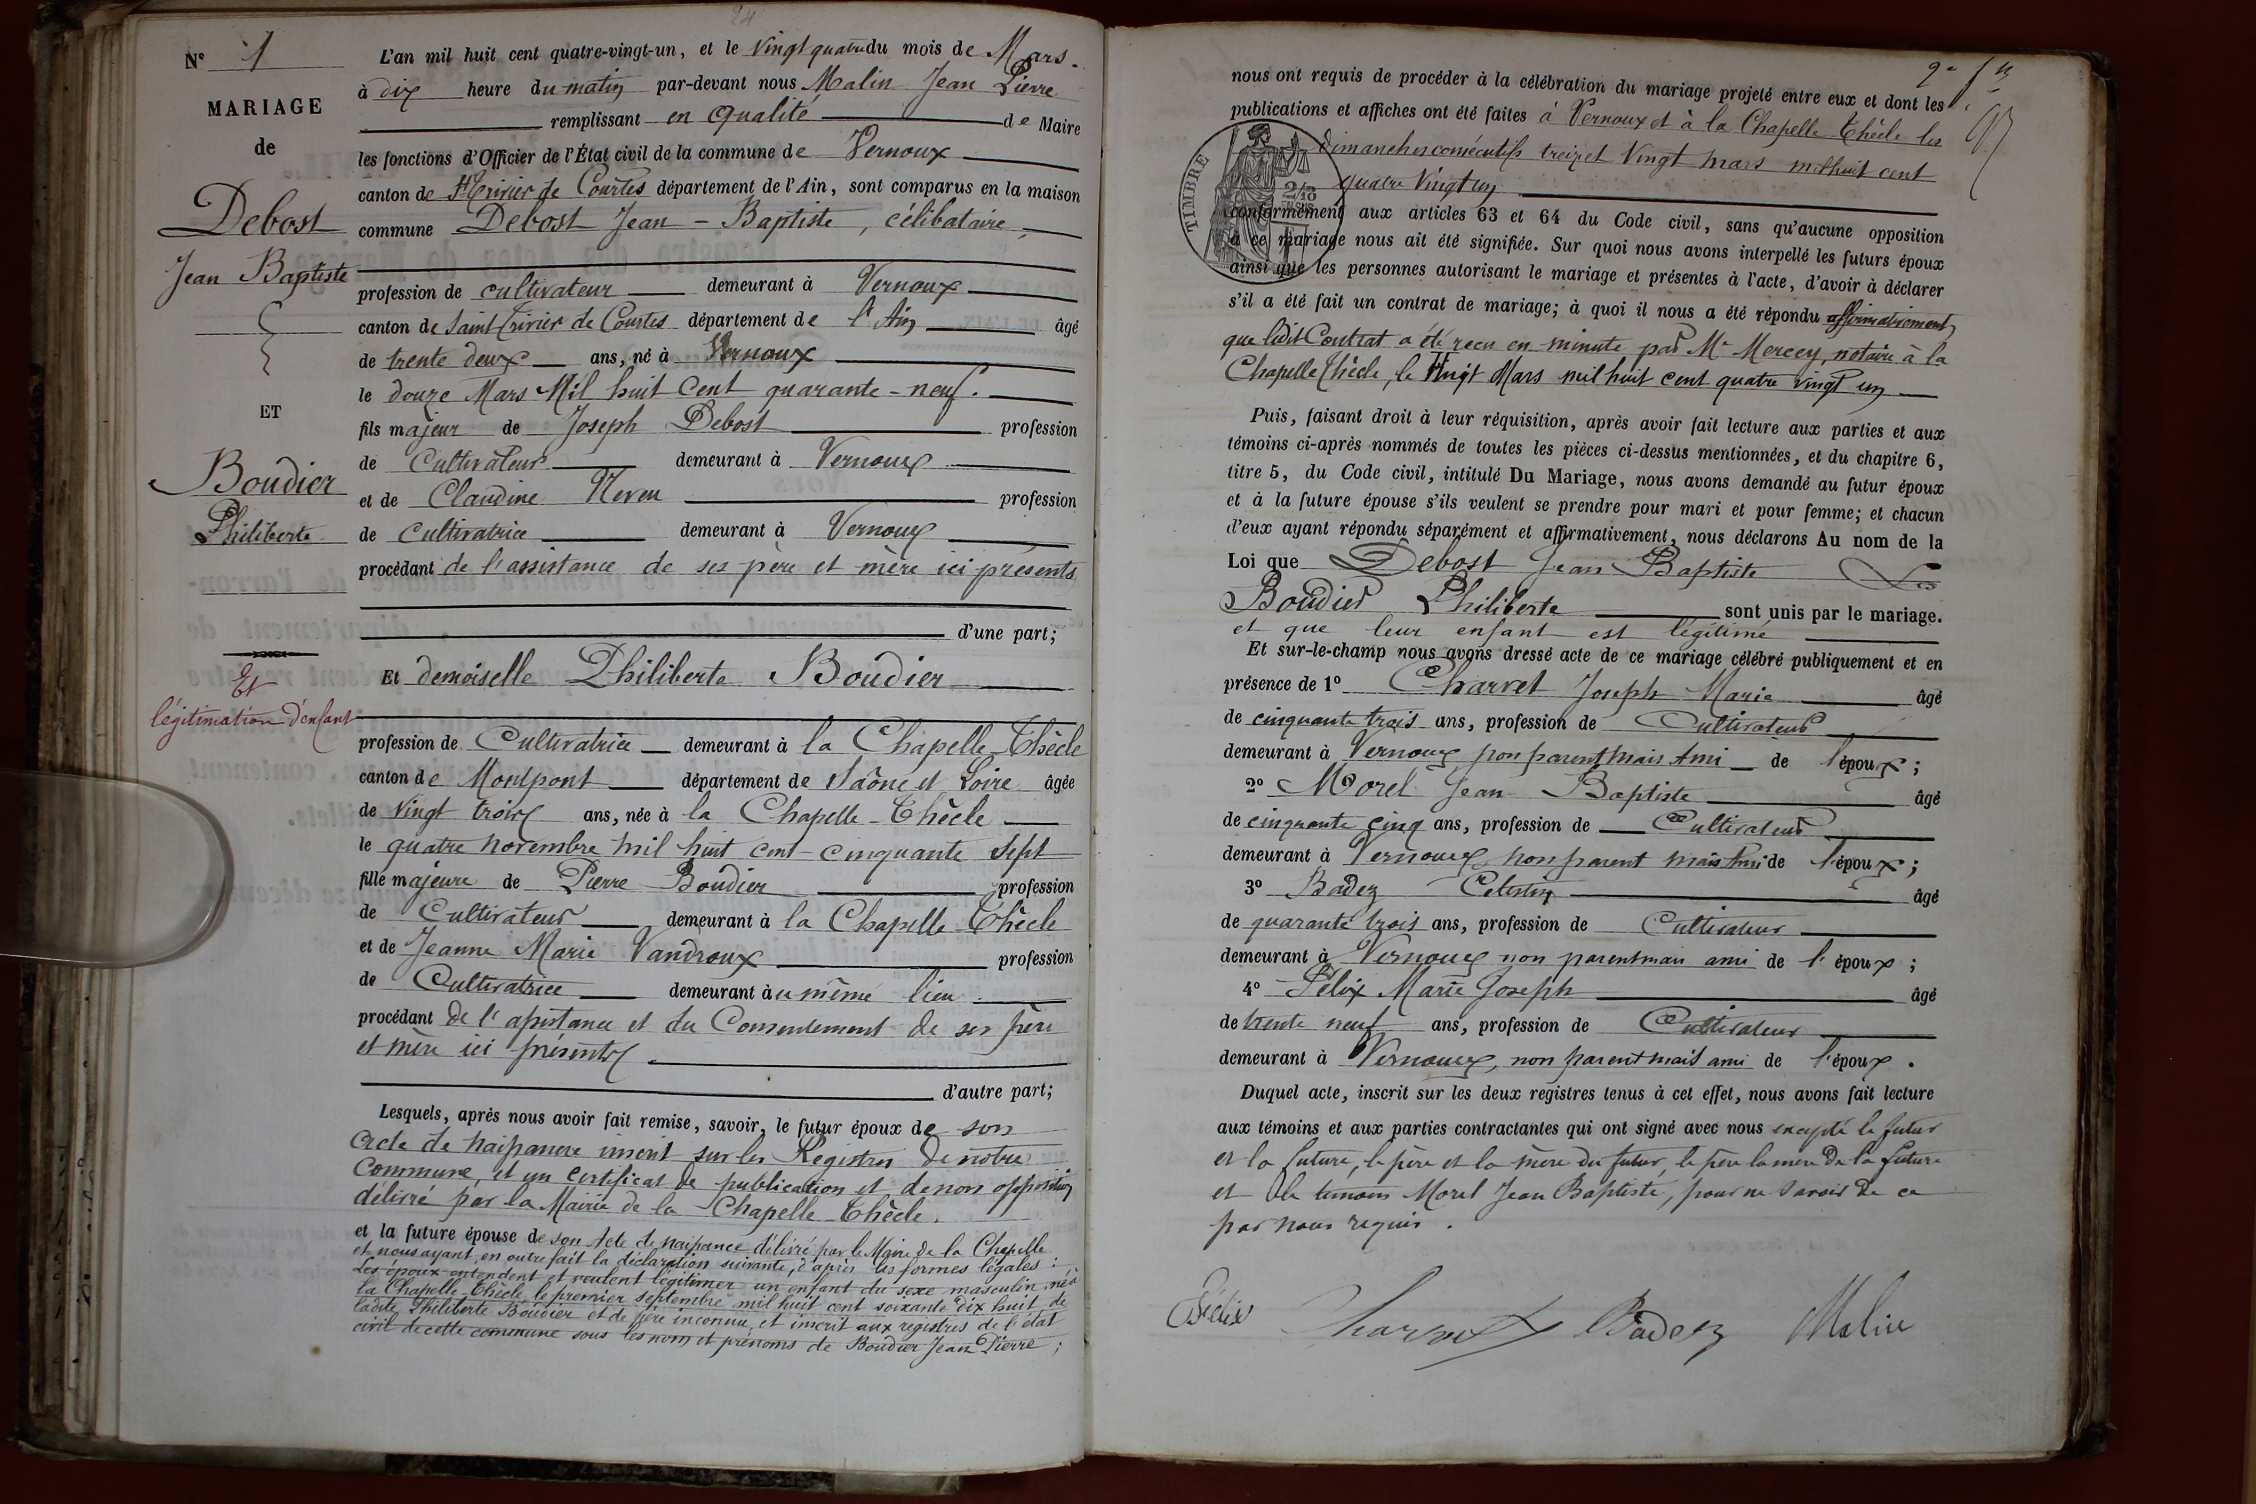 24
N° 1
MARIAGE
de
Debost
Jean Baptiste
ET
Boudier
Philiberte
Et
légitimation d'enfant
L'an mil huit cent quatre-vingt-un, et le vingt quatre du mois de Mars.
à dix heure du matin par-devant nous Malin Jean Pierre
remplissant en qualité de Maire
les fonctions d'Officier de l'État civil de la commune de Vernoux
canton de St Trivier de Courtes département de l'Ain, sont comparus en la maison
commune Debost Jean - Baptiste, célibataire,
profession de cultivateur demeurant à Vernoux
canton de Saint Trivier de Courtes département de l'Ain âgé
de trente deux ans, né à Vernoux
le douze Mars Mil huit Cent quarante-neuf.
fils majeur de Joseph Debost profession
de Cultivateur demeurant à Vernoux
et de Claudine Neveu profession
de cultivatrice demeurant à Vernoux
procédant de l'assistance de ses père et mère ici présents
d'une part;
Et demoiselle Philiberte Boudier
profession de Cultivatrice demeurant à la Chapelle-Thècle
canton de Montpont département de Saône et Loire âgée
de vingt trois ans, née à la Chapelle-Thècle
le quatre novembre mil huit cent cinquante sept
fille majeure de Pierre Boudier profession
de Cultivateur demeurant à la Chapelle Thècle
et de Jeanne Marie Vandroux profession
de Cultivatrice demeurant à u même lieu
procédant de l'assistance et du Consentement de ses père
et mère ici présents.
d'autre part;
Lesquels, après nous avoir fait remise, savoir, le futur époux de son
acte de naissance inscrit sur les Registres de notre
Commune, et un certificat de publication et de non opposition
délivré par la Mairie de la Chapelle-Thècle.
et la future épouse de son Acte de naissance délivré par le Maire de la Chapelle
et nous ayant, en outre fait la déclaration suivante, d'après les formes légales :
Les époux entendent et veulent légitimer un enfant du sexe masculin, né à
la Chapelle-Thècle le premier septembre mil huit cent soixante dix huit, de
ladite Philiberte Boudier et de père inconnu, et inscrit aux registres de l'état
civil de cette commune sous les nom et prénoms de Boudier Jean Pierre ;
nous ont requis de procéder à la célébration du mariage projeté entre eux et dont les
publications et affiches ont été faites à Vernoux et à la Chapelle Thècle les
TIMBRE
dimanches consécutifs treize et vingt mars mil huit cent
quatre vingt un
conformément aux articles 63 et 64 du Code civil, sans qu'aucune opposition
à ce mariage nous ait été signifiée. Sur quoi nous avons interpellé les futurs époux
ainsi que les personnes autorisant le mariage et présentes à l'acte, d'avoir à déclarer
s'il a été fait un contrat de mariage; à quoi il nous a été répondu affirmativement
que ledit Contrat a été recu en minute par Me Mercey, notaire à la
Chapelle Thècle, le Vingt Mars mil huit cent quatre vingt un
Puis, faisant droit à leur réquisition, après avoir fait lecture aux parties et aux
témoins ci-après nommés de toutes les pièces ci-dessus mentionnées, et du chapitre 6,
titre 5, du Code civil, intitulé Du Mariage, nous avons demandé au futur époux
et à la future épouse s'ils veulent se prendre pour mari et pour femme; et chacun
d'eux ayant répondu séparément et affirmativement, nous déclarons Au nom de la
Loi que Debost Jean Baptiste
Boudier Philiberte sont unis par le mariage.
et que leur enfant est légitimé
Et sur-le-champ nous avons dressé acte de ce mariage célébré publiquement et en
présence de 1° Charvet Joseph Marie âgé
de cinquante trois ans, profession de Cultivateur
demeurant à Vernoux non parent mais Ami de l'époux ;
2° Morel Jean Baptiste âgé
de cinquante cinq ans, profession de Cultivateur
demeurant à Vernoux non parent mais Ami de l'époux ;
3° Badez Celestin âgé
de quarante trois ans, profession de Cultivateur
demeurant à Vernoux non parent mais ami de l'époux ;
4° Félix Marie Joseph âgé
de trente neuf ans, profession de Cultivateur
demeurant à Vernoux, non parent mais ami de l'époux.
Duquel acte, inscrit sur les deux registres tenus à cet effet, nous avons fait lecture
aux témoins et aux parties contractantes qui ont signé avec nous excepté le futur
et la future, le père et la mère du futur, le père la mère de la future
et le témoin Morel Jean Baptiste, pour ne savoir de ce
par nous requis.
Félix Charvet Badez Malin